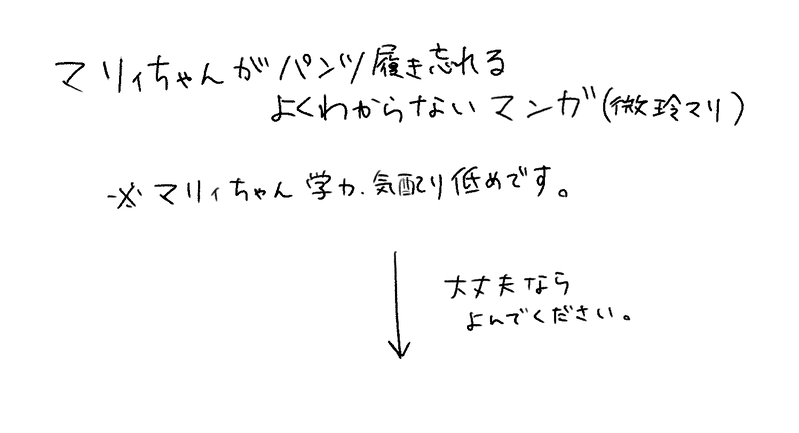 マリィちゃんがパンツ履き忘れる
よくわからないマンガ(微玲マリ)
※マリィちゃん学力、気配り低めです。
大丈夫なら
よんでください。